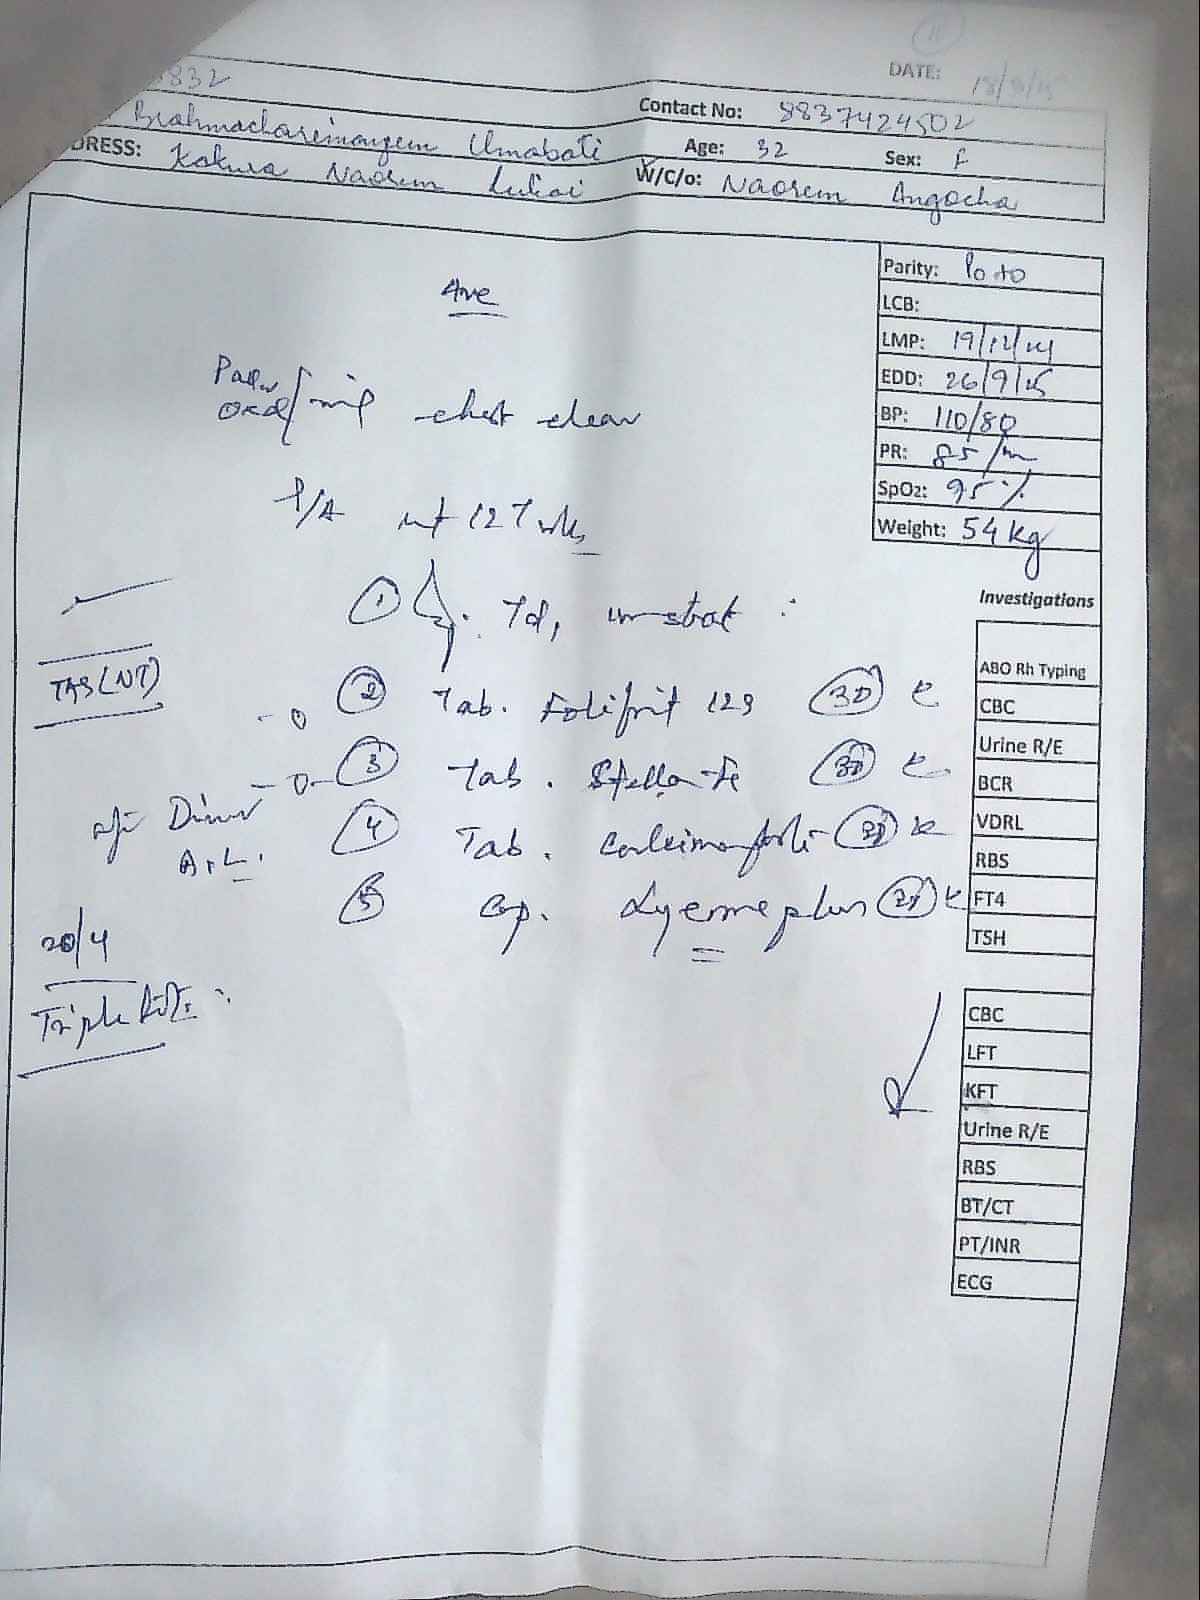 11
DATE: 18/3/25
5832
Contact No: 8837424502
Brahmacharimayum Umabati
Age: 32 Sex: F
DRESS: Kakwa Naorem Leikai
W/C/o: Naorem Angocha
Parity: P0+0
LCB:
LMP: 19/12/24
EDD: 26/9/25
BP: 110/80
PR: 85/m
SpO2: 95%
Weight: 54 kg
chest clear
P/A ut 12 wks
① Td, stat
TAS (NT)
② Tab. Folifrit 123 30
③ Tab. Stella 30
Dinner
④ Tab. 30
A.L.
⑤ Cap. plus
20/4
Triple
Investigations
ABO Rh Typing
CBC
Urine R/E
BCR
VDRL
RBS
FT4
TSH
CBC
LFT
KFT
Urine R/E
RBS
BT/CT
PT/INR
ECG